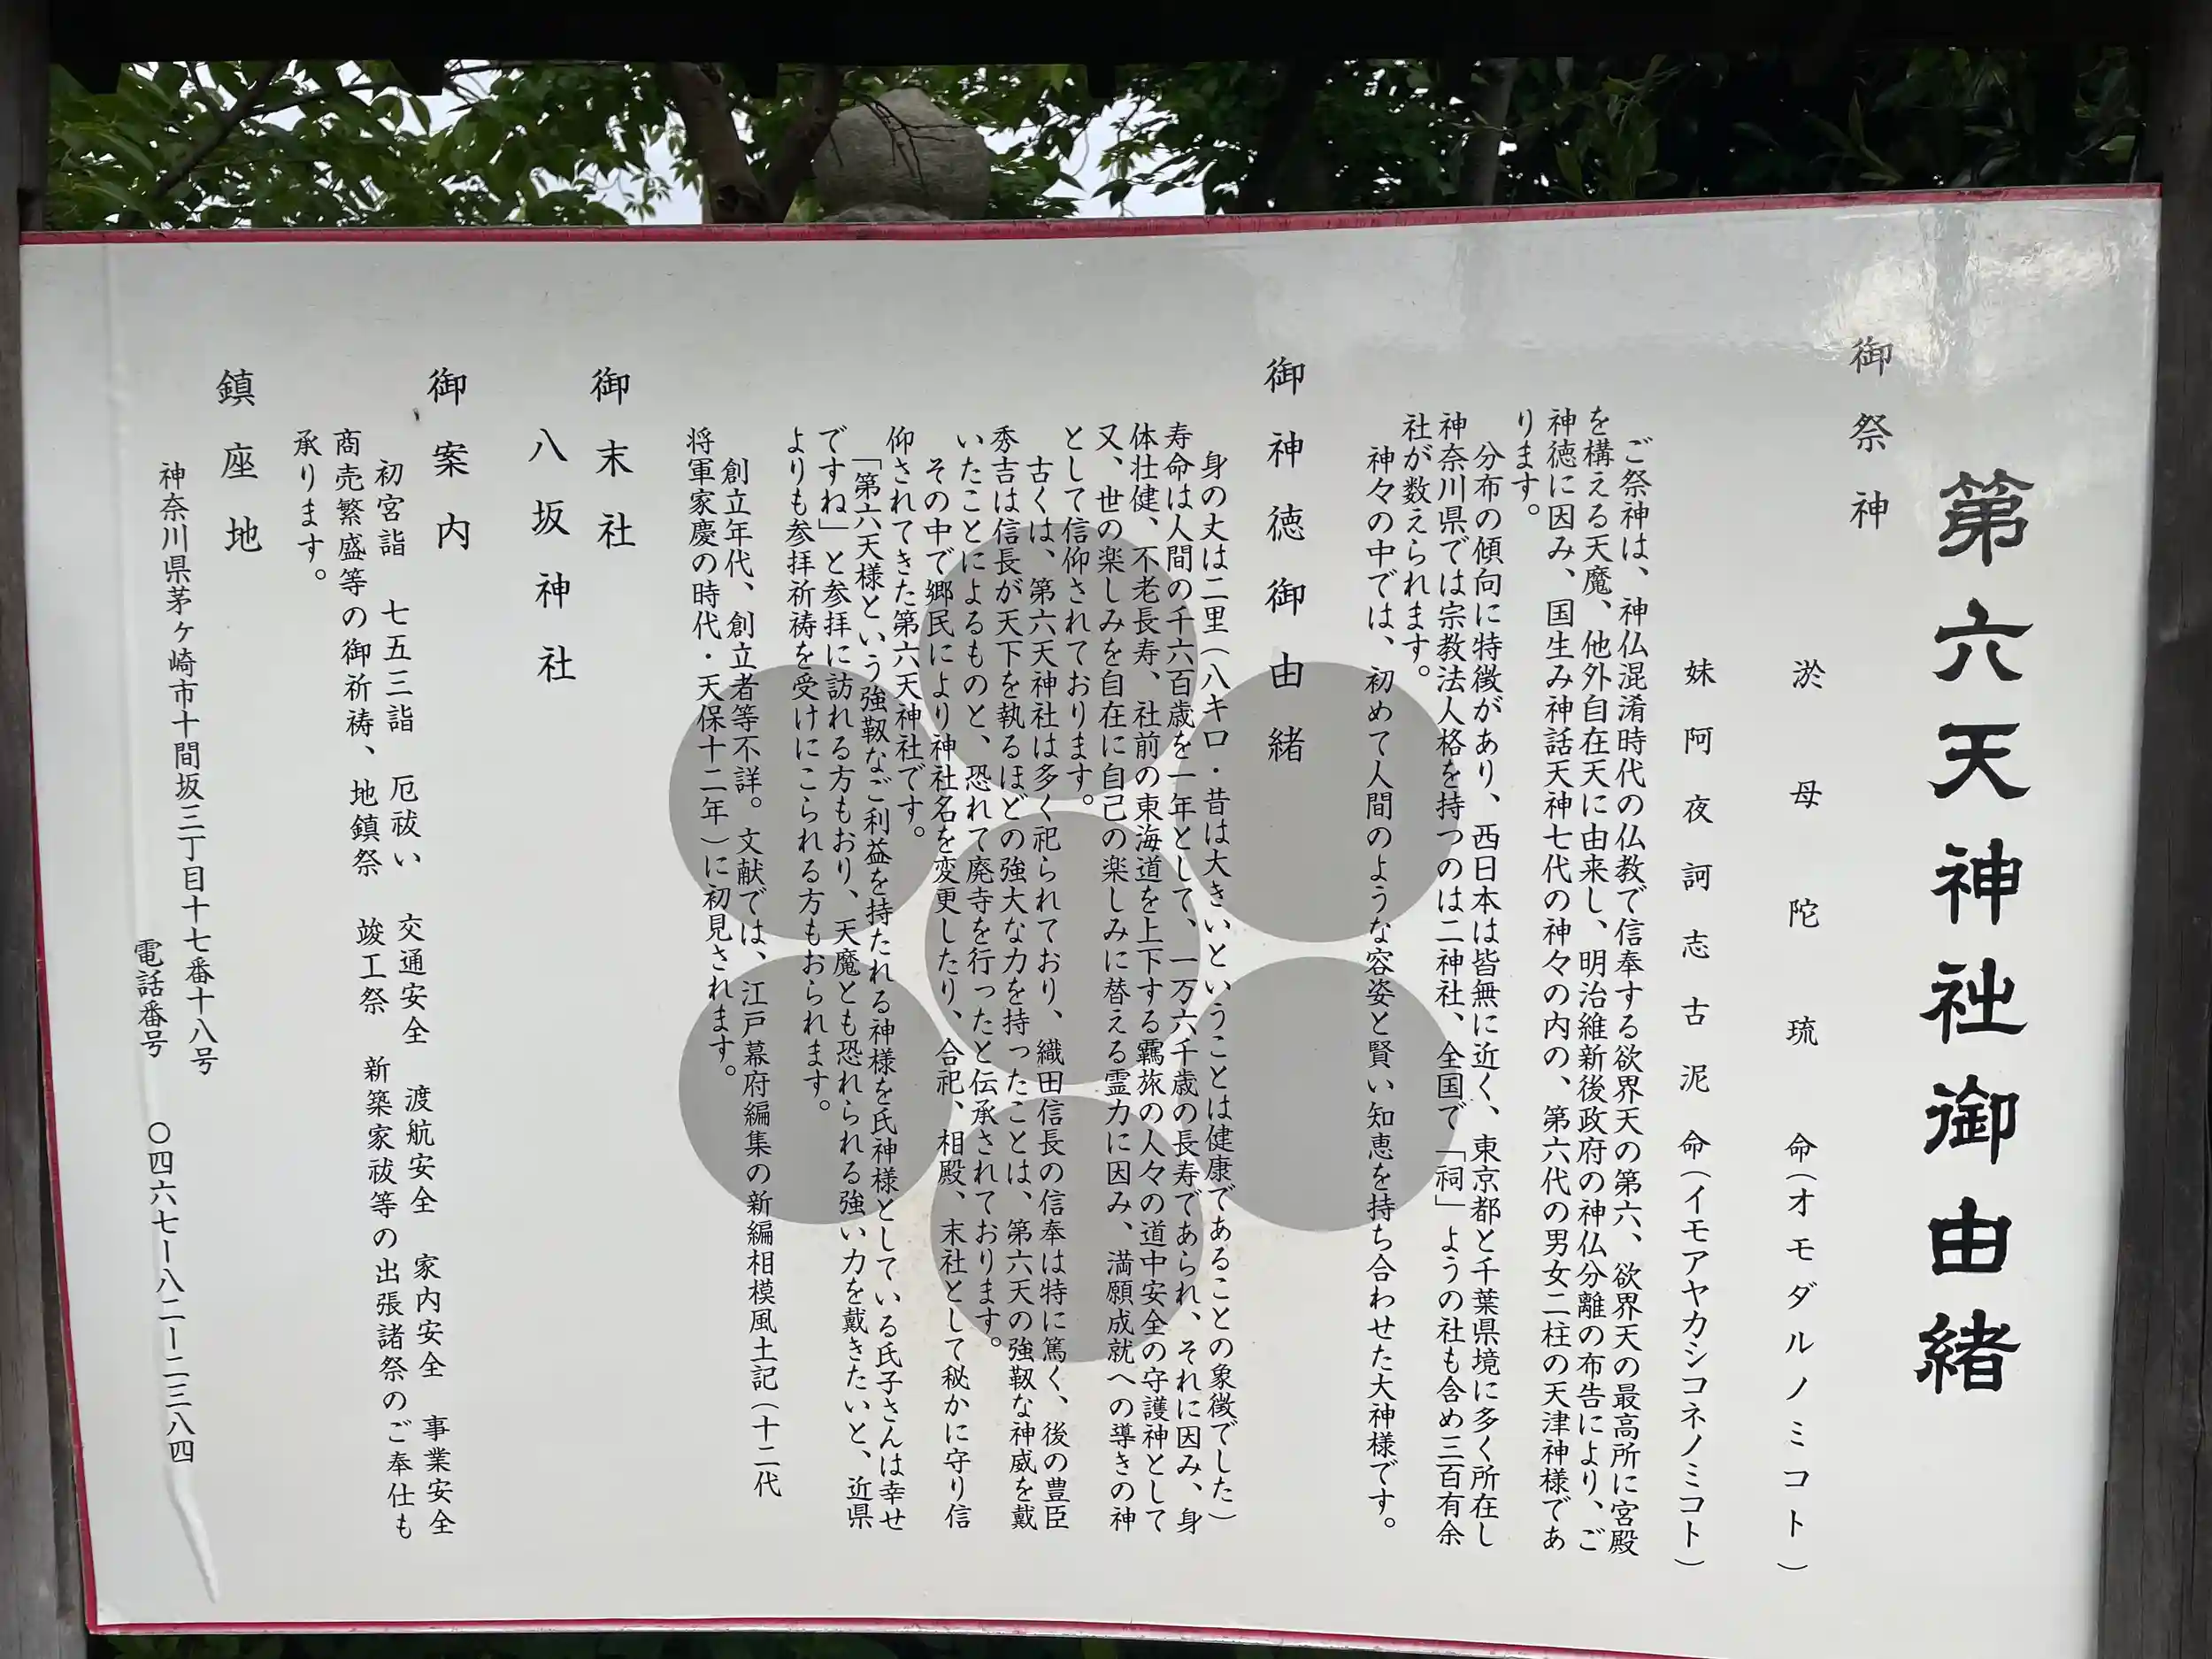 第六天神社御由緒
御祭神
淤母陀琉命(オモダルノミコト)
妹阿夜訶志古泥命(イモアヤカシコネノミコト)
ご祭神は、神仏混淆時代の仏教で信奉する欲界天の第六、欲界天の最高所に宮殿
を構える天魔、他外自在天に由来し、明治維新後政府の神仏分離の布告により、ご
神徳に因み、国生み神話天神七代の神々の内の、第六代の男女二柱の天津神様であ
ります。
分布の傾向に特徴があり、西日本は皆無に近く、東京都と千葉県境に多く所在し
神奈川県では宗教法人格を持つのは二神社、全国で「祠」ようの社も含め三百有余
社が数えられます。
神々の中では、初めて人間のような容姿と賢い知恵を持ち合わせた大神様です。
御神徳御由緒
身の丈は二里(八キロ・昔は大きいということは健康であることの象徴でした)
寿命は人間の千六百歳を一年として、一万六千歳の長寿であられ、それに因み、身
体壮健、不老長寿、社前の東海道を上下する覊旅の人々の道中安全の守護神として
又、世の楽しみを自在に自己の楽しみに替える霊力に因み、満願成就への導きの神
として信仰されております。
古くは、第六天神社は多く祀られており、織田信長の信奉は特に篤く、後の豊臣
秀吉は信長が天下を執るほどの強大な力を持ったことは、第六天の強靱な神威を戴
いたことによるものと、恐れて廃寺を行ったと伝承されております。
その中で郷民により神社名を変更したり、合祀、相殿、末社として秘かに守り信
仰されてきた第六天神社です。
「第六天様という強靱なご利益を持たれる神様を氏神様としている氏子さんは幸せ
ですね」と参拝に訪れる方もおり、天魔とも恐れられる強い力を戴きたいと、近県
よりも参拝祈祷を受けにこられる方もおられます。
創立年代、創立者等不詳。文献では、江戸幕府編集の新編相模風土記(十二代
将軍家慶の時代・天保十二年)に初見されます。
御末社
八坂神社
御案内
初宮詣 七五三詣 厄祓い 交通安全 渡航安全 家内安全 事業安全
商売繁盛等の御祈祷、地鎮祭 竣工祭 新築家祓等の出張諸祭のご奉仕も
承ります。
鎮座地
神奈川県茅ヶ崎市十間坂三丁目十七番十八号
電話番号 〇四六七ー八二ー二三八四